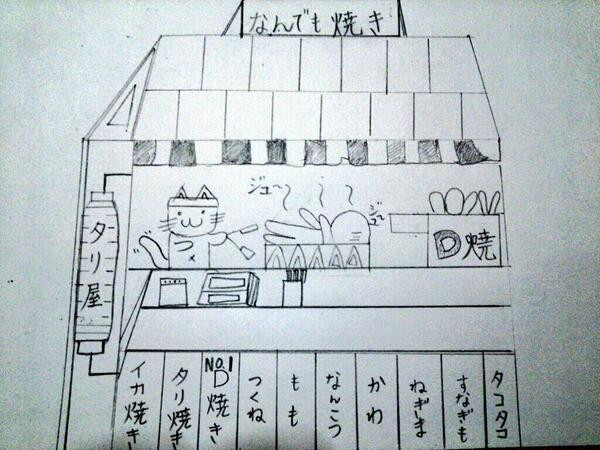 なんでも焼き
ジュ〜
ジュ〜
D焼
タリ屋
タコタコ
すなぎも
ねぎま
かわ
なんこう
もも
つくね
NO.1 D焼き
タリ焼き
イカ焼き